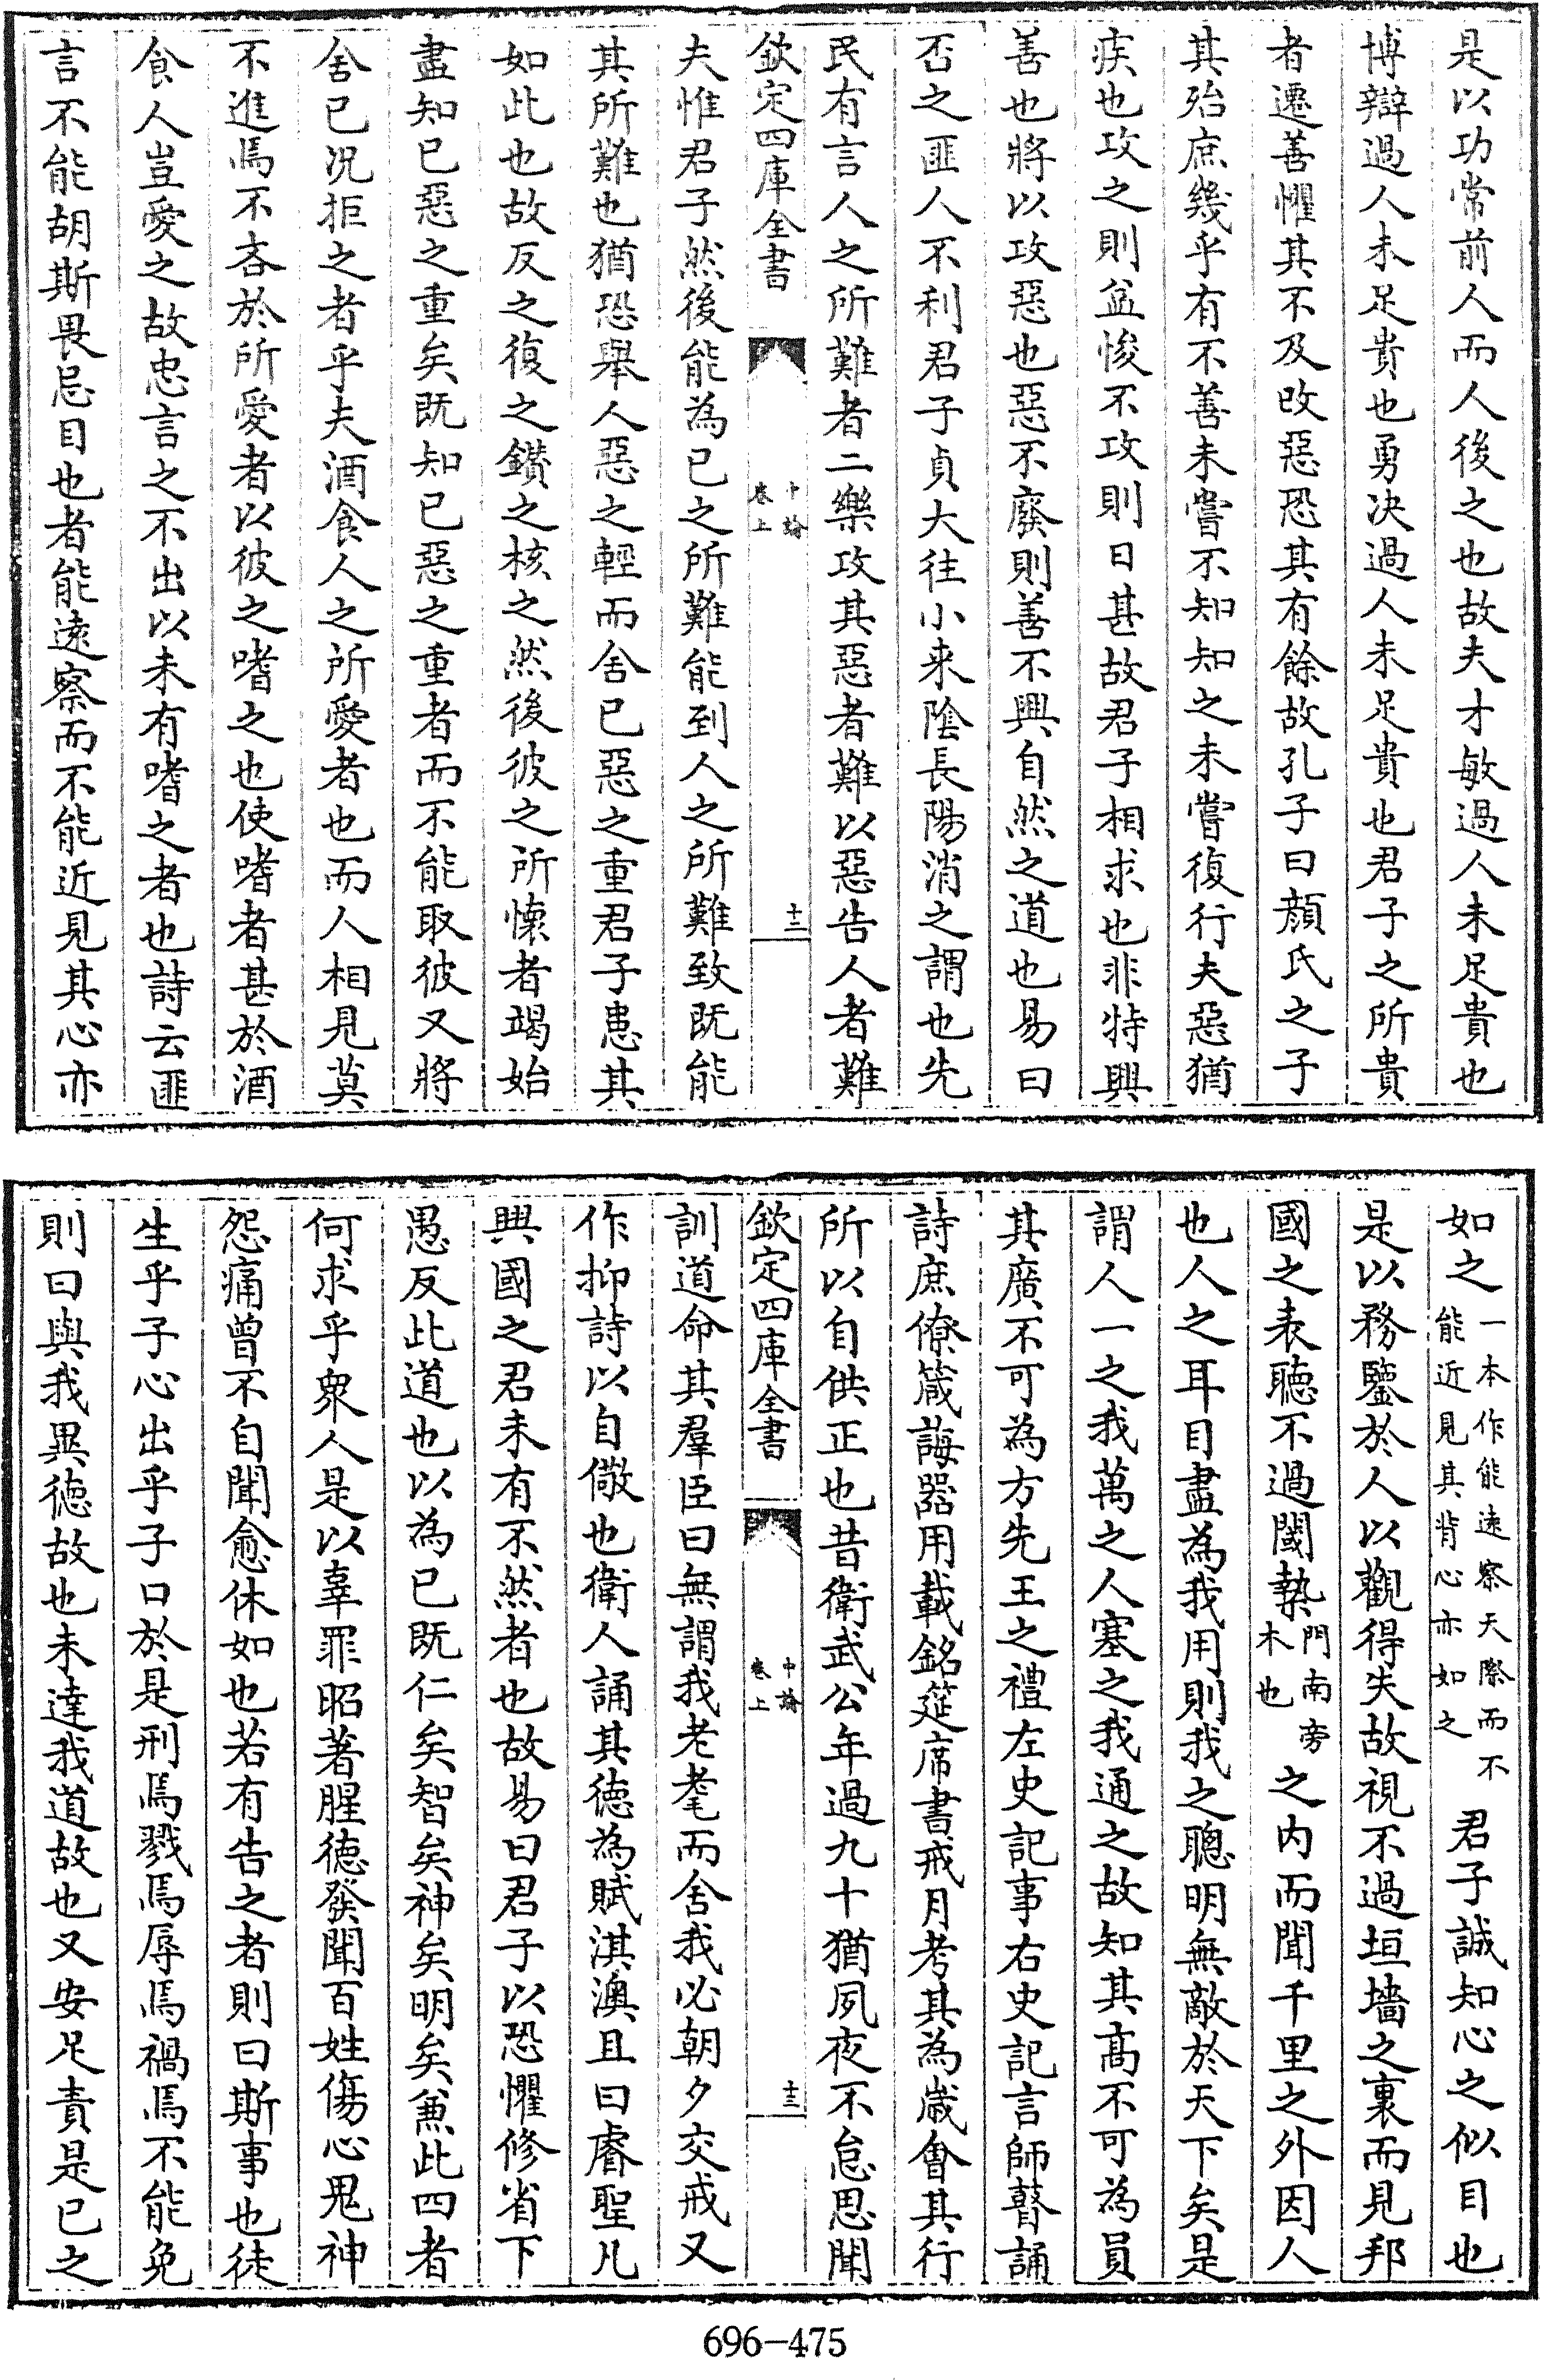 是以功常前人而人後之也故夫才敏過人未足貴也
博辯過人未足貴也勇決過人未足貴也君子之所貴
者遷善懼其不及改惡恐其有餘故孔子曰顔氏之子
其殆庶幾乎有不善未嘗不知知之未嘗復行夫惡猶
疾也攻之則益悛不攻則日甚故君子相求也非特興
善也將以攻惡也惡不廢則善不興自然之道也易曰
否之匪人不利君子貞大往小来陰長陽消之謂也先
民有言人之所難者二樂攻其惡者難以惡告人者難
欽定四庫全書
中論
卷上
十二
夫惟君子然後能為已之所難能到人之所難致既能
其所難也猶恐舉人惡之輕而舍已惡之重君子患其
如此也故反之復之鑚之核之然後彼之所懷者竭始
盡知已惡之重矣既知已惡之重者而不能取彼又將
舍已况拒之者乎夫酒食人之所愛者也而人相見莫
不進焉不吝於所愛者以彼之嗜之也使嗜者甚於酒
食人豈愛之故忠言之不出以未有嗜之者也詩云匪
言不能胡斯畏忌目也者能遠察而不能近見其心亦
如之
一本作能遠察天際而不
能近見其背心亦如之
君子誠知心之似目也
是以務鑒於人以觀得失故視不過垣墻之裏而見邦
國之表聽不過閾槷
門南旁
木也
之内而聞千里之外因人
也人之耳目盡為我用則我之聰明無敵於天下矣是
謂人一之我萬之人塞之我通之故知其髙不可為員
其廣不可為方先王之禮左史記事右史記言師瞽誦
詩庶僚箴誨器用載銘筵席書戒月考其為歲㑹其行
所以自供正也昔衛武公年過九十猶夙夜不怠思聞
欽定四庫全書
中論
卷上
十三
訓道命其羣臣曰無謂我老耄而舍我必朝夕交戒又
作抑詩以自儆也衛人誦其徳為賦淇澳且曰睿聖凡
興國之君未有不然者也故易曰君子以恐懼修省下
愚反此道也以為已既仁矣智矣神矣明矣兼此四者
何求乎衆人是以辜罪昭著腥徳發聞百姓傷心鬼神
怨痛曾不自聞愈休如也若有告之者則曰斯事也徒
生乎子心出乎子口於是刑焉戮焉辱焉禍焉不能免
則曰與我異徳故也未達我道故也又安足責是已之
696-475